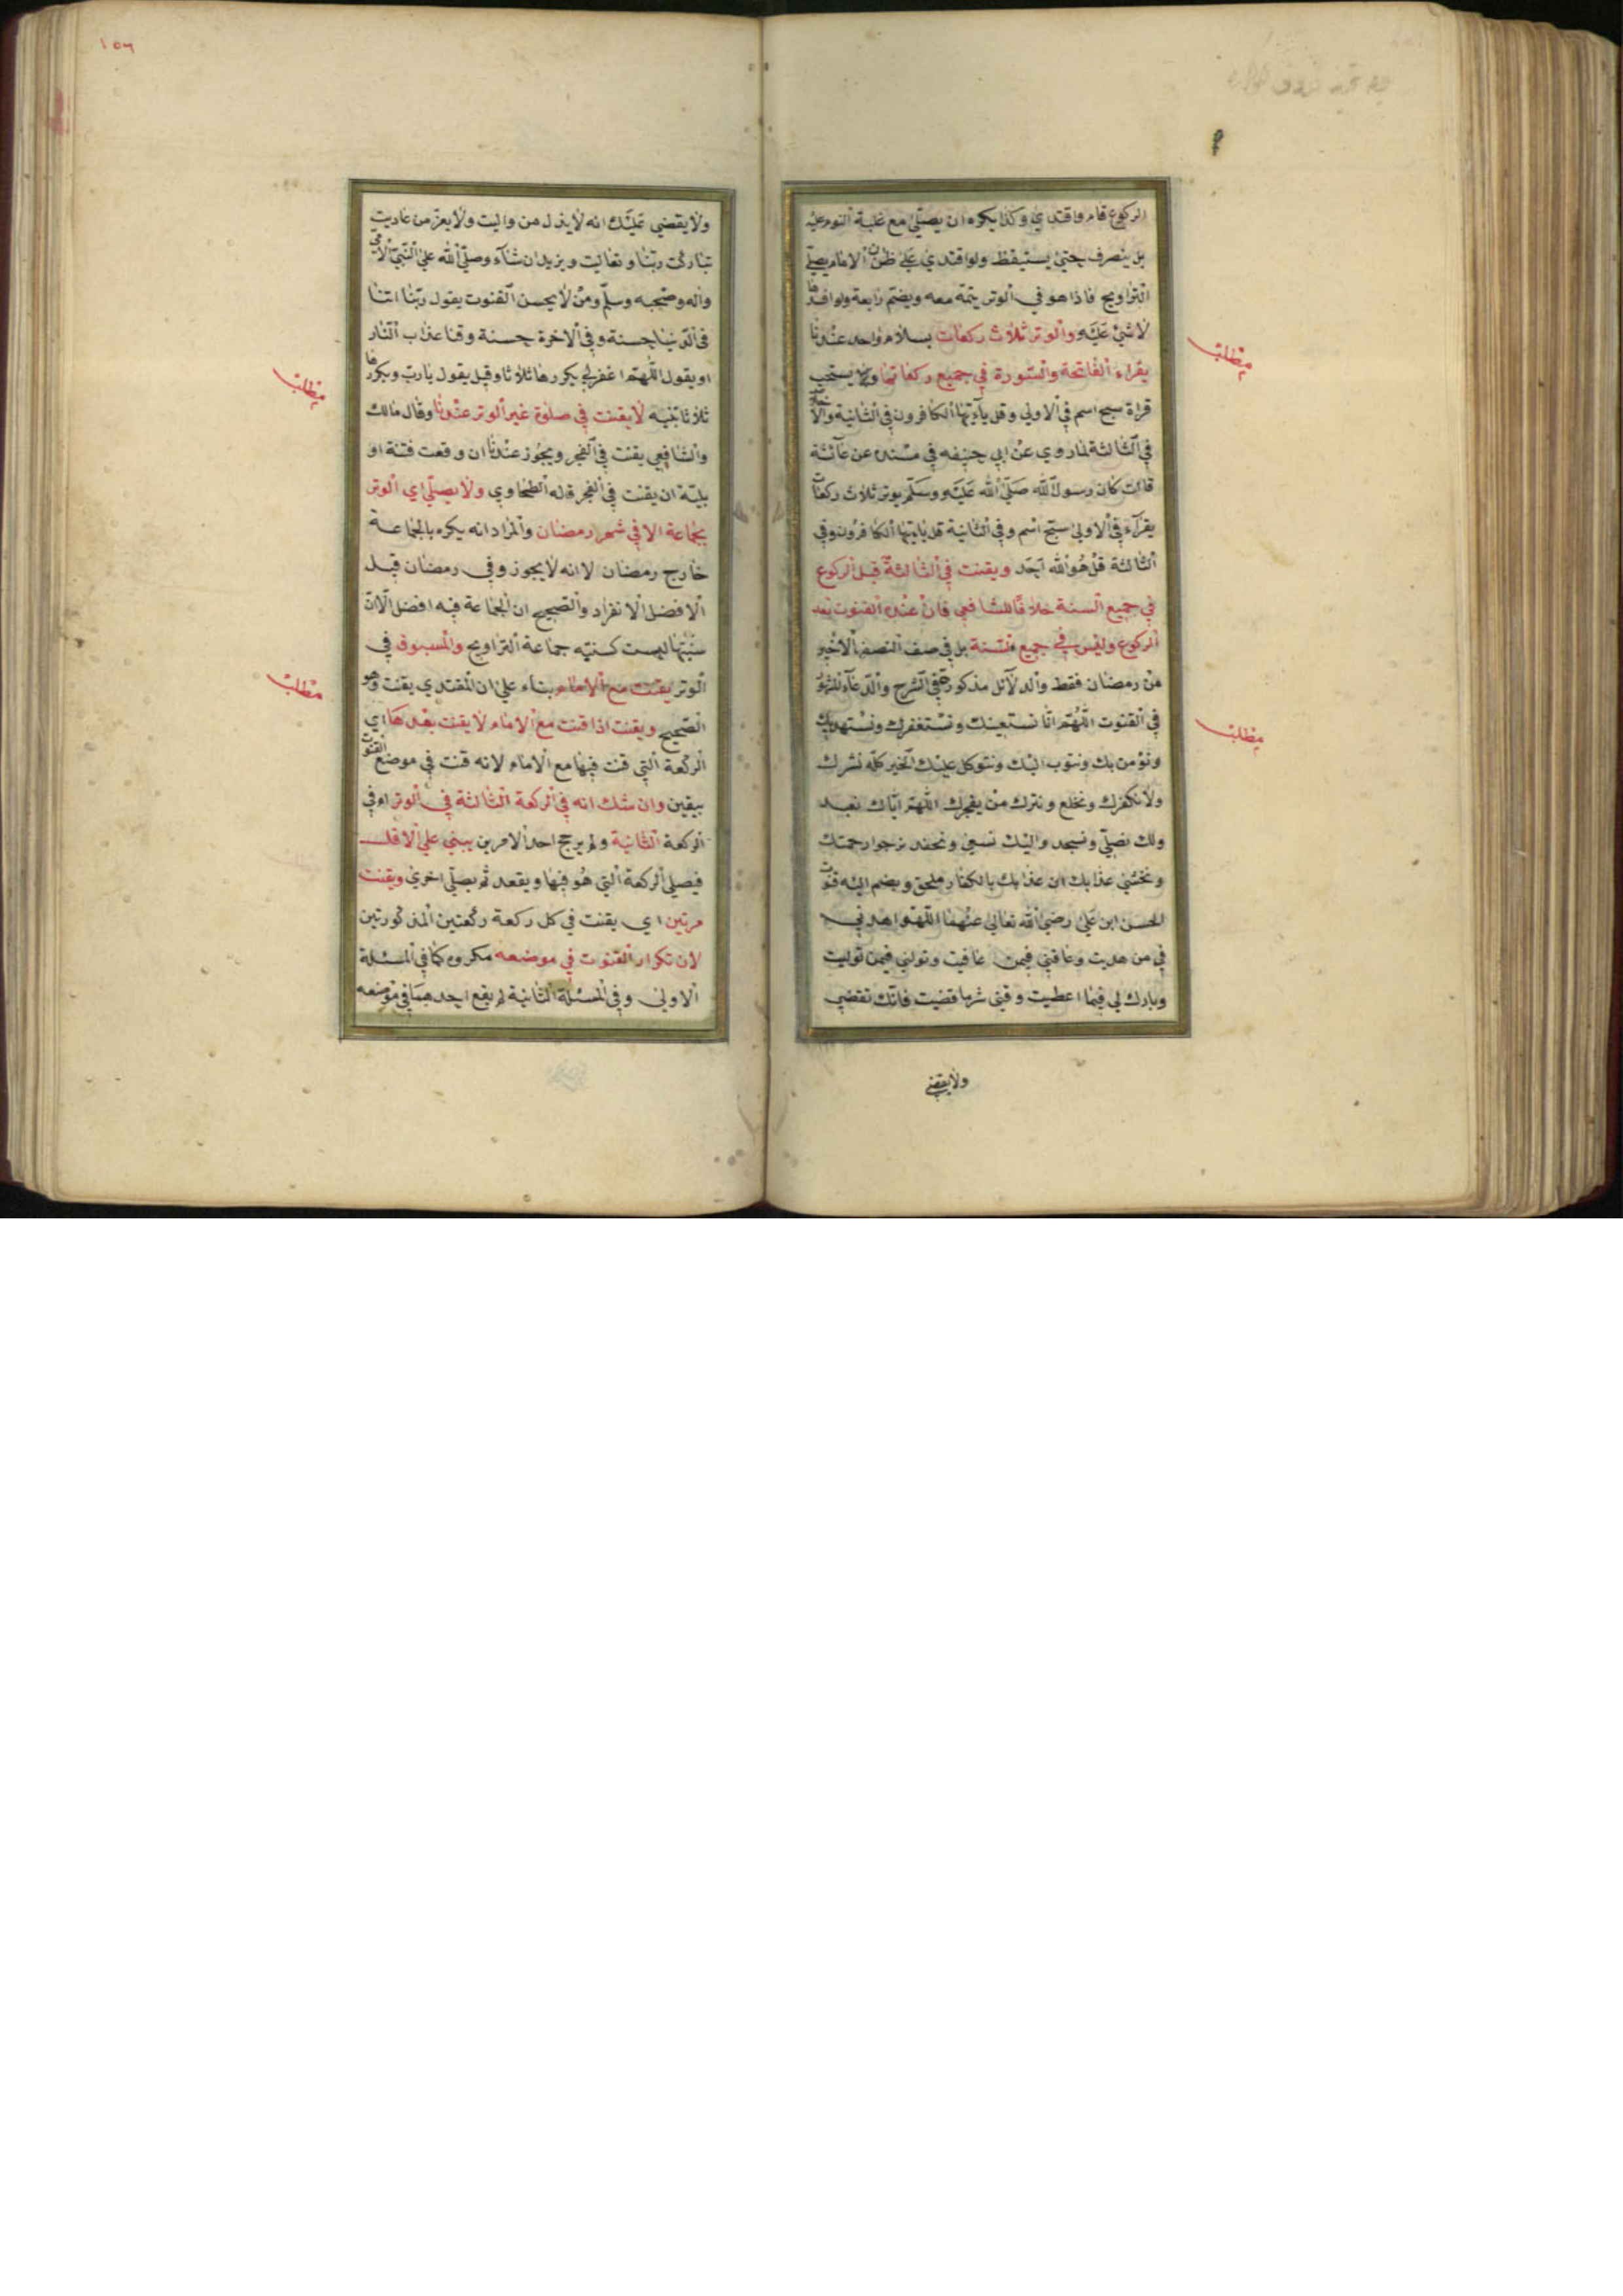 الركوع قام واقتدي وكذا يكره ان يصلي مع غلبة النوم عليه
بل ينصرف حتي يستيقظ ولو اقتدي علي ظن ان الامام يصلي
التراويح فاذا هو في الوتر يتمه معه ويضم رابعة ولو افسدها
لا شئ عليه والوتر ثلاث ركعات بسلام واحد عندنا
يقراء الفاتحة والسورة في جميع ركعاتها ويستحب
قراة سبح اسم في الاولي وقل يآءيها الكافرون في الثانية والاخلاص
في الثالثة لما روي عن ابي حنيفه في مسنده عن عآئشة
قالت كان رسول الله صلي الله عليه وسلم يوتر ثلاث ركعات
يقرآء في الاولي سبح اسم وفي الثانية قل ياءيها الكافرون وفي
الثالثة قل هو الله احد ويقنت في الثالثة قبل الركوع
في جميع السنة خلافا للشافعي فان عنده القنوت بعد
الركوع وليس في جميع السنة بل في النصف الاخير
من رمضان فقط والدلآئل مذكورة في الشرح والدعآء المشهور
في القنوت اللهم انا نستعينك ونستغفرك ونستهديك
ونؤمن بك ونتوب اليك ونتوكل عليك الخير كله نشرك
ولا نكفرك ونخلع ونترك من يفجرك اللهم اياك نعبد
ولك نصلي ونسجد واليك نسعي ونحفد نرجوا رحمتك
ونخشي عذابك ان عذابك بالكفار ملحق ويضم اليه قنوت
الحسن ابن علي رضي الله تعالي عنهما اللهم اهدني
في من هديت وعافني فيمن عافيت وتولني فيمن توليت
وبارك لي فيما اعطيت وقني شر ما قضيت فانك تقضي
ولا يقضي
مطلب
مطلب
١٥٦
ولا يقضي عليك انه لا يذل من واليت ولا يعز من عاديت
تباركت ربنا وتعاليت ويزيد ان شآء وصلي الله علي النبي الامي
واله وصحبه وسلم ومن لا يحسن القنوت يقول ربنا اتنا
في الدنيا حسنة وفي الاخرة حسنة وقنا عذاب النار
او يقول اللهم اغفر لي يكررها ثلاثا وقيل يقول يارب ويكررها
ثلاثا تنبيه لا يقنت في صلوة غير الوتر عندنا وقال مالك
والشافعي يقنت في الفجر ويجوز عندنا ان وقعت فتنة او
بلية ان يقنت في الفجر قاله الطحاوي ولا يصلي اي الوتر
بجماعة الا في شهر رمضان والمراد انه يكره بالجماعة
خارج رمضان لا انه لا يجوز وفي رمضان قيل
الافضل الانفراد والصحيح ان الجماعة فيه افضل الا ان
سنيتها ليست كسنية جماعة التراويح والمسبوق في
الوتر يقنت مع الامام بناء علي ان المقتدي يقنت وهو
الصحيح ويقنت اذا قنت مع الامام لا يقنت بعدها اي
الركعة التي قنت فيها مع الامام لانه قنت في موضع القنوت
بيقين وان شك انه في الركعة الثالثة في الوتر او في
الركعة الثانية ولم يرجح احد الامرين يبني علي الاقل
فيصلي الركعة التي هو فيها ويقعد ثم يصلي اخري ويقنت
مرتين اي يقنت في كل ركعة ركعتين المذكورتين
لان تكرار القنوت في موضعه مكروه كما في المسئلة
الاولي وفي المسئلة الثانية لم يقع احدهما في موضعه
مطلب
مطلب